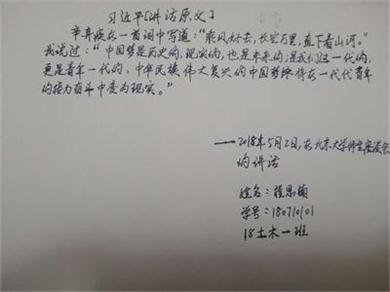 习近平[讲话原文]
辛弃疾在一首词中写道:“乘风好去,长空万里,直下看山河。”
我说过:“中国梦是历史的,现实的,也是未来的;是我们这一代的,
更是青年一代的,中华民族伟大复兴的中国梦终将在一代代青年
的接力奋斗中变为现实。”
——2018年5月2日,在北京大学师生座谈会
的讲话
姓名:程思翰
学号:180710101
18土木一班